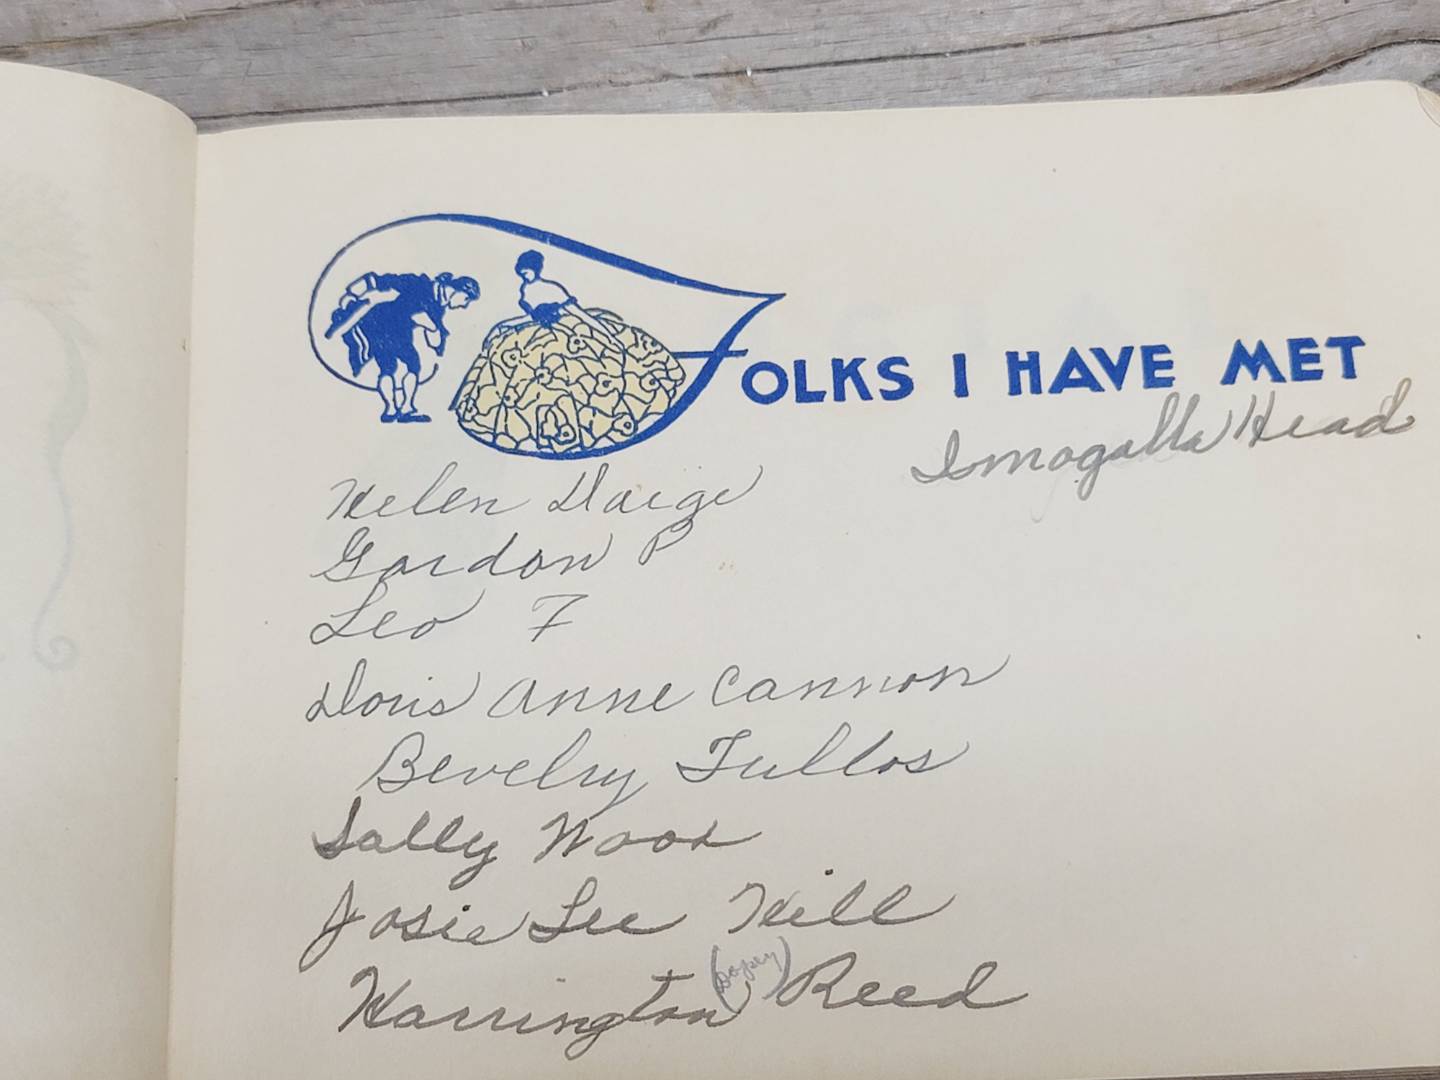 FOLKS I HAVE MET
Imogalla Head
Helen Daige
Gordon P
Leo F
Doris Anne Cannon
Bevelry Tullos
Sally Wood
Josie Lee Hill
Harrington (Dopey) Reed